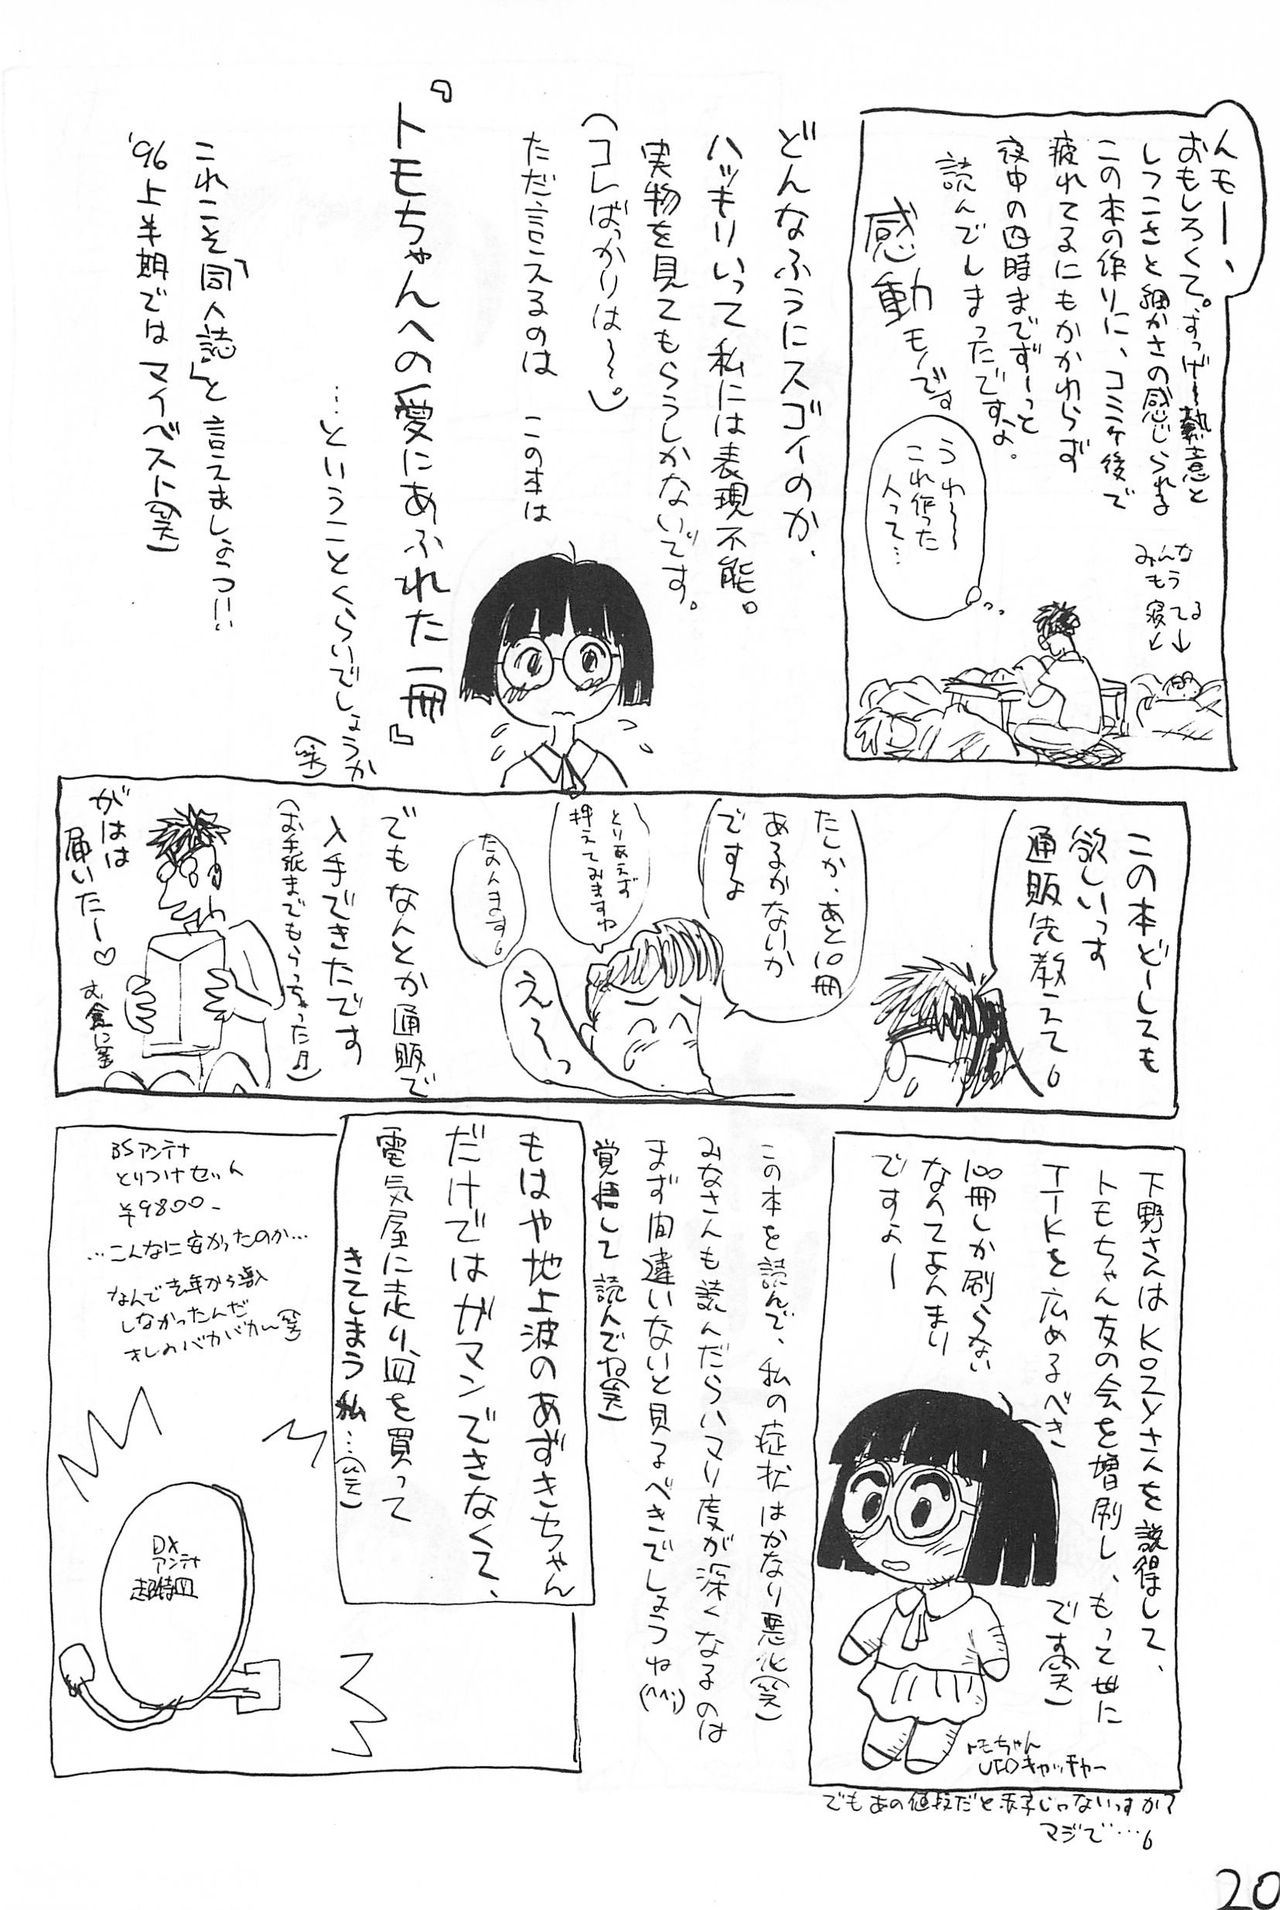 んもー、
おもしろくて。すっげー熱意と
しつこさと細かさの感じられる
この本の作りに、コミケ後で
疲れてるにもかかわらず
夜中の四時までずーっと
読んでしまったですよ。
感動モノです
うわ〜
これ作った
人って…
みんな
もう
寝てる
どんなふうにスゴイのか、
ハッキリいって私には表現不能。
実物を見てもらうしかないです。
(コレばっかりは〜。)
ただ言えるのは この本は
『トモちゃんへの愛にあふれた一冊』
…ということくらいでしょうか
(笑)
これこそ「同人誌」と言えましょうっ!!
'96上半期ではマイベスト(笑)
この本どーしても
欲しいっす
通販先教えて
たしか、あと10冊
あるかないか
ですよ
とりあえず
押えてみますね
たのんます
え〜っ
でもなんとか通販で
入手できたです
(お手紙までもらっちゃった♬)
がはは
届いたー♡
下野さんはKOZYさんを説得して、
トモちゃん友の会を増刷し、もって世に
TTKを広めるべき
です(笑)
100冊しか刷らない
なんてよんまり
ですよー
トモちゃん
UFOキャッチャー
でもあの値段だと赤字じゃないっすか?
マジで…
この本を読んで、私の症状はかなり悪化(笑)
みなさんも読んだらハマリ度が深くなるのは
まず間違いないと見るべきでしょうね(^^;)
覚悟して読んでね(笑)
もはや地上波のあずきちゃん
だけではガマンできなくて、
電気屋に走り、皿を買って
きてしまう私…(笑)
BSアンテナ
とりつけセット
¥9800-
…こんなに安かったのか…
なんで去年から導入
しなかったんだ
オレのバカバカ〜(笑)
DX
アンテナ
超特皿
20